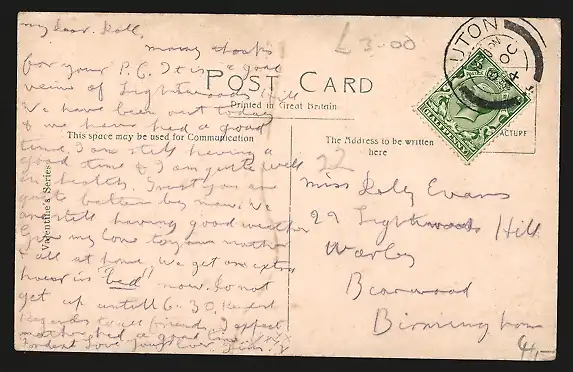 my dear Doll,
many thanks
for your P.C. It is a good
view of Lightwoods Hill
We have been out today
& we have had a good
time. I am still having a
good time & I am quite well
in health. Trust you are
quite better by now. We
are still having good weather
Give my love to your mother
& all at home. We get an extra
hour in "bed" now. Do not
get up untill 6-30. Kindest
Regards to all friends. I expect
mother had a good time. xxx
Fondest Love yours ever
£3-00
POST CARD
Printed in Great Britain
This space may be used for Communication
The Address to be written
here
Valentine's Series
22
Miss Doly Evans
29 Lightwoods Hill
Warley
Bearwood
Birmingham
4/-
LUTON
OC
HALFPENNY
ACTURE